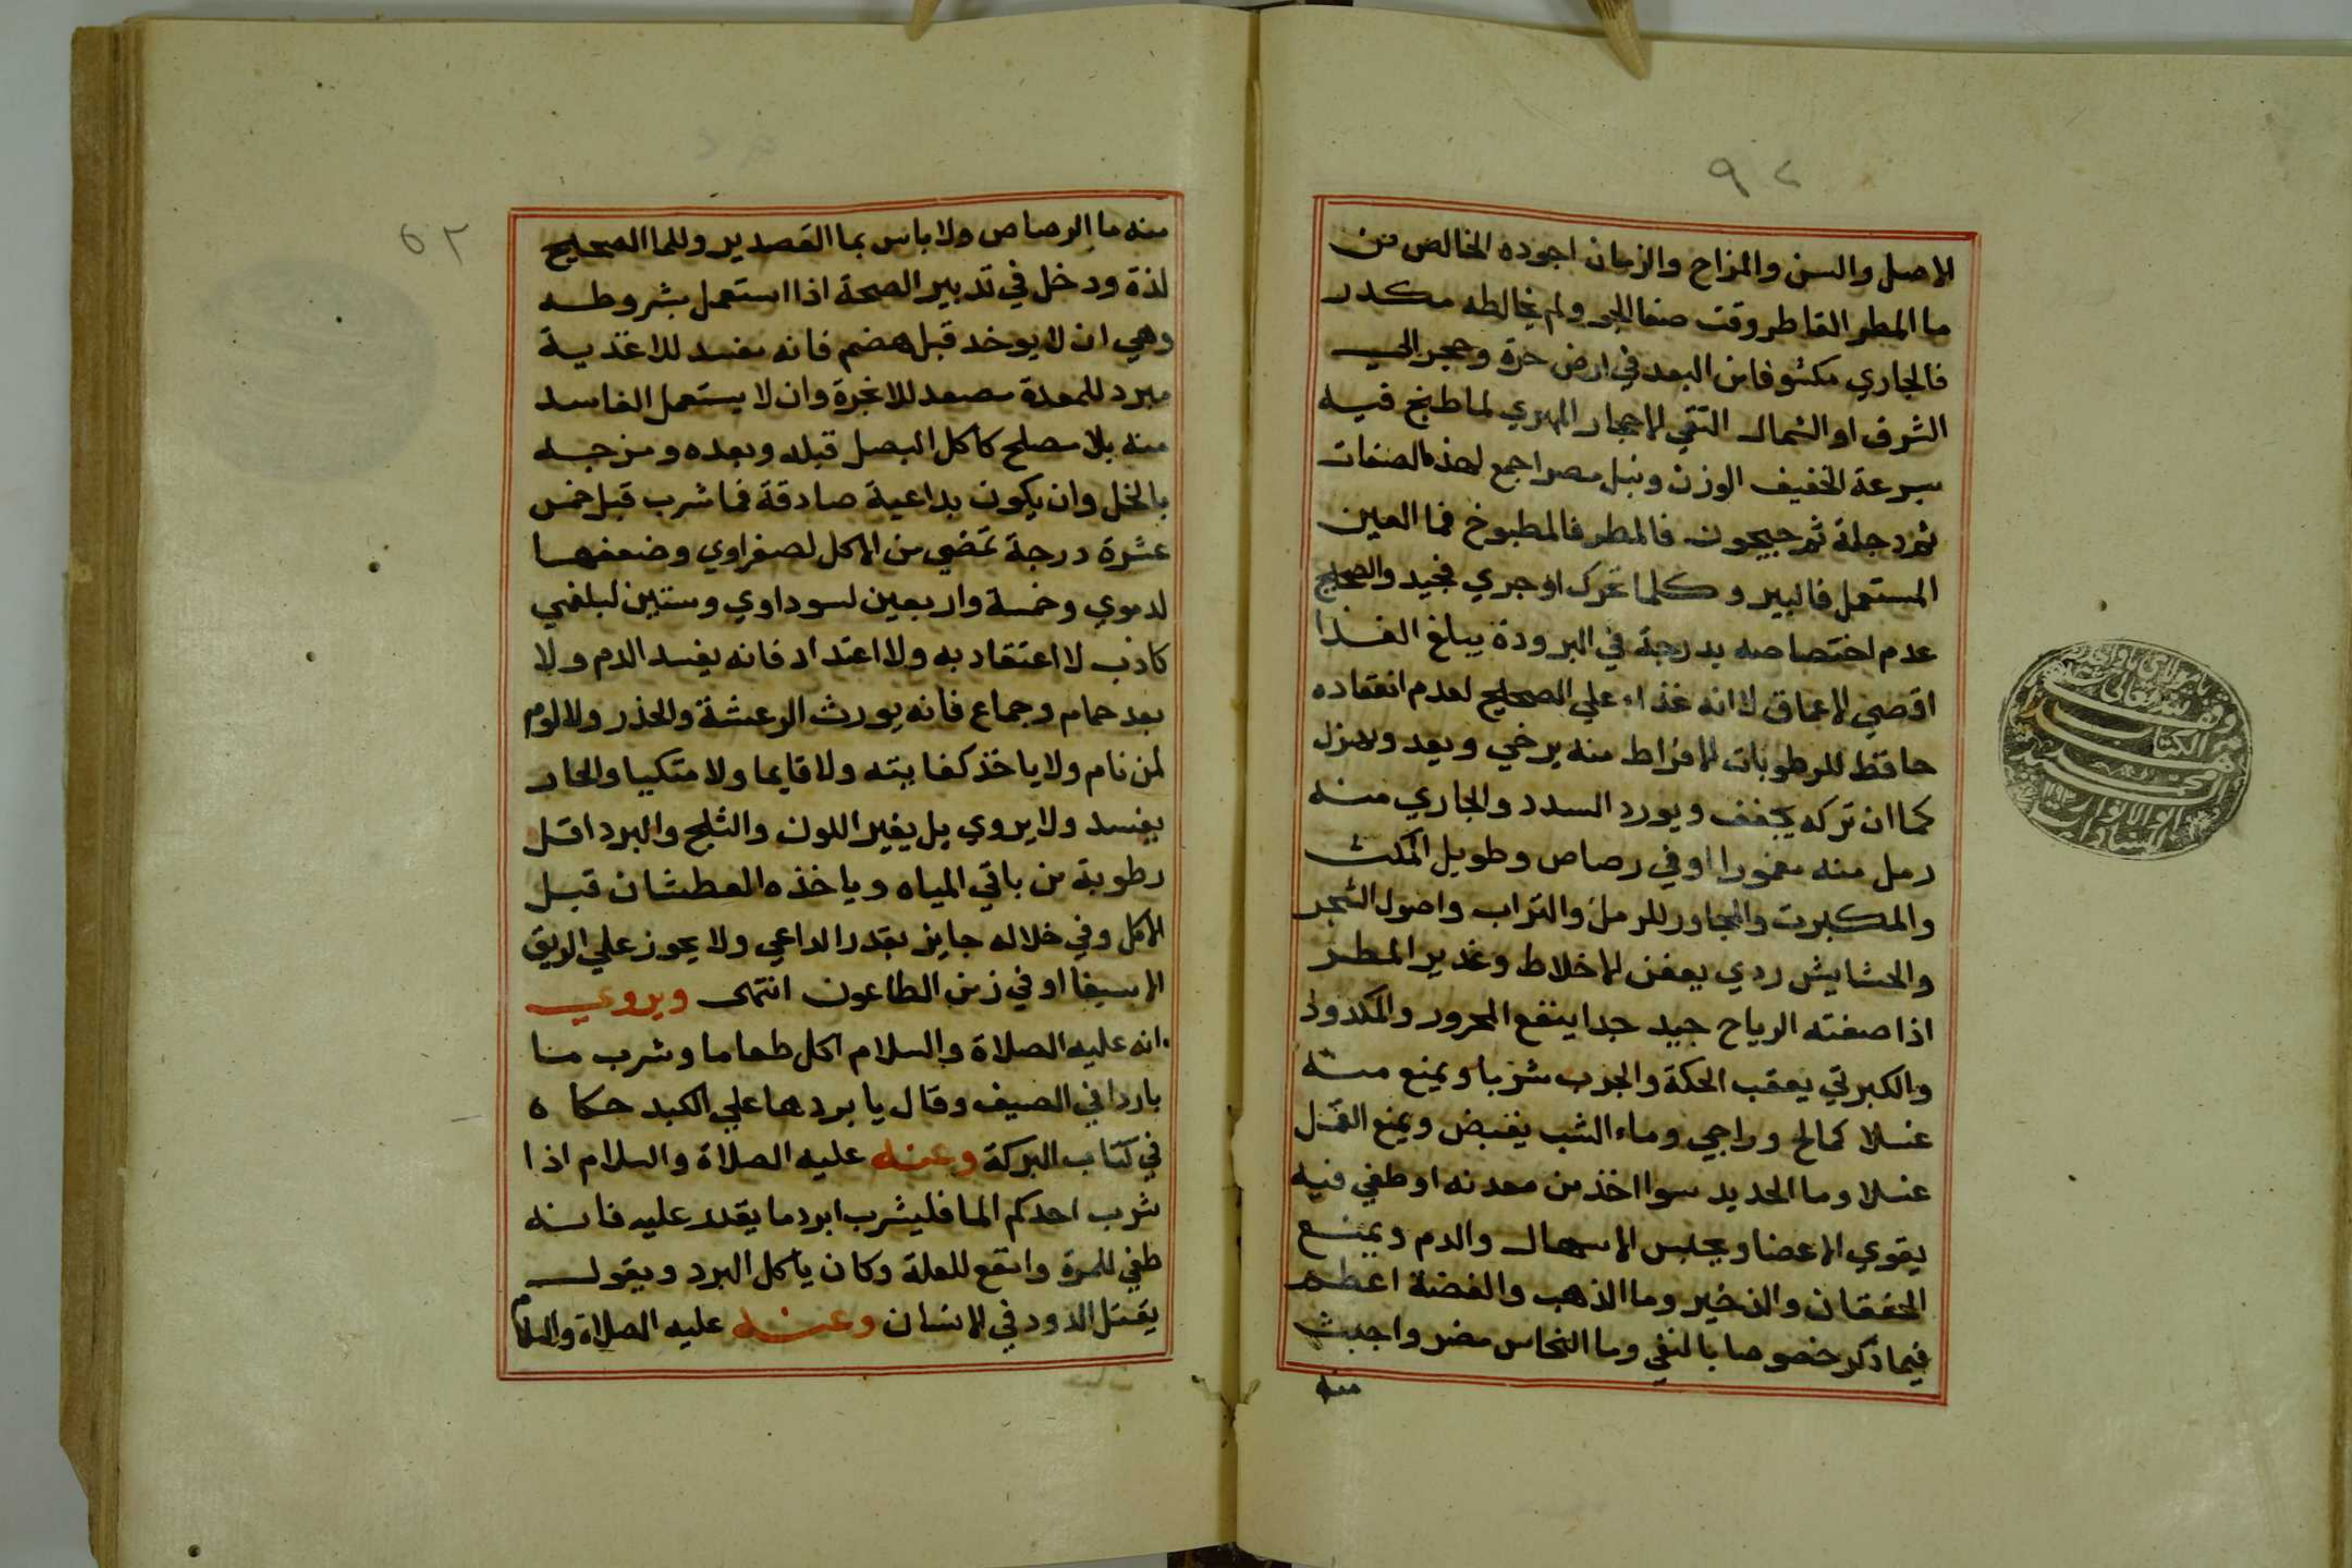 الاصل والسن والمزاج والزمان اجوده الخالص من
ما المطر القاطر وقت صفا الجو ولم يخالطه مكدر
فالجاري مكشوفا من البعد في ارض حرة وحجر الى
الشرق او الشمال النقي الاحجار المهري لما طبخ فيه
بسرعة الخفيف الوزن ونيل مصر اجمع لهذه الصفات
ثم دجلة ثم جيحون فالمطر فالمطبوخ فما العين
المستعمل فالبير وكلما تحرك او جري فجيد والصحيح
عدم اختصاصه بدرجة في البرودة يبلغ الغذا
اقصي الاعماق لا انه غذاء علي الصحيح لعدم انعقاده
حافظ للرطوبات الافراط منه يرخي و ويهزل
كما ان تركه يجفف ويورد السدد والجاري منه
رمل منه مغمورا او في رصاص وطويل المكث
والمكبرت والمجاور للرمل والتراب واصول الشجر
والحشايش ردي يعفن الاخلاط وغدير المطر
اذا صفته الرياح جيد جدا ينفع المحرور والمكدود
والكبرتي يعقب الحكة والجرب شربا ويمنع منه
غسلا كمالح وراجي وماء الشب يقبض ويمنع القمل
غسلا وما الحديد سوا اخذ من معدنه او طفي فيه
يقوي الاعضا ويحبس الاسهال والدم ويمنع
الخفقان والذخير وما الذهب والفضة اعظم
فيما ذكر خصوصا بالنفي وما النحاس مضر واخبث
منه
٦٢
منه ما الرصاص ولا باس بما القصدير وللما الصحيح
لذة ودخل في تدبير الصحة اذا استعمل بشروطه
وهي ان لا يوخد قبل هضم فانه مفسد للاغذية
مبرد للمعدة مصعد للابخرة وان لا يستعمل الفاسد
منه بلا مصلح كاكل البصل قبله وبعده ومزجه
بالخل وان يكون بداعية صادقة فما شرب قبل خمس
عشرة درجة تمضي من الاكل لصفراوي وضعفها
لدموي وخمسة واربعين لسوداوي وستين لبلغمي
كاذب لا اعتقاد به ولا اعتداد فانه يفسد الدم ولا
بعد حمام وجماع فانه يورث الرعشة والخدر ولا لوم
لمن نام ولا ياخذ كفايته ولا قايما ولا متكيا والحار
يفسد ولا يروي بل يغير اللون والثلج والبرد اقل
رطوبة من باقي المياه وياخذه العطشان قبل
الاكل وفي خلاله جايز بقدر الداعي ولا يجوز علي الريق
الا سيفا او في زمن الطاعون انتهى ويروي
انه عليه الصلاة والسلام اكل طعاما وشرب ما
باردا في الصيف وقال يا بردها علي الكبد حكاه
في كتاب البركة وعنه عليه الصلاة والسلام اذا
شرب احدكم الما فليشرب ابرد ما يقدر عليه فانه
طفي للمرة وانفع للعلة وكان ياكل البرد ويقول
يقتل الدود في الانسان وعنه عليه الصلاة والسلام